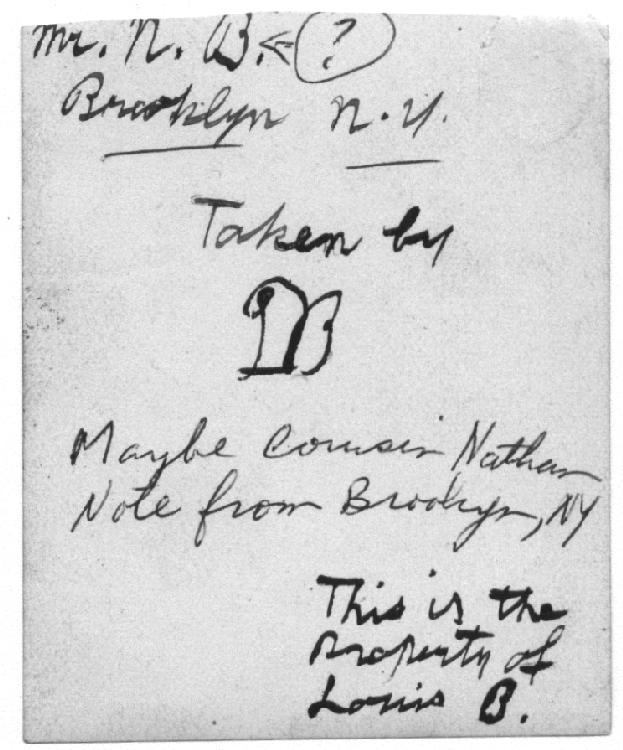 Mr. N. B. ← ?
Brooklyn N.Y.
Taken by
DB
Maybe Cousin Nathan
Note from Brooklyn, NY
This is the
Property of
Louis B.